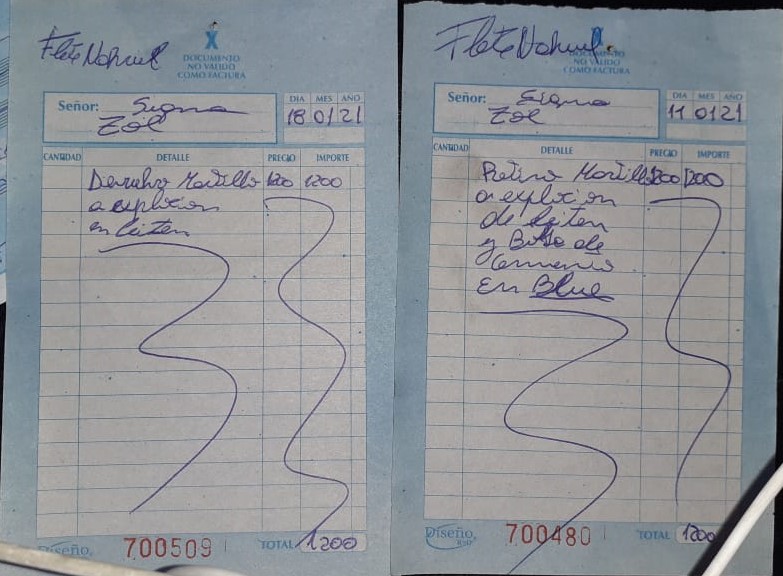 Flete Nahuel
X
DOCUMENTO
NO VALIDO
COMO FACTURA
Señor: Sigma
Zol
DIA MES AÑO
18 01 21
CANTIDAD DETALLE PRECIO IMPORTE
Martillo 1200 1200
a explocion
en
Diseño
700509
TOTAL 1200
Flete Nahuel
DOCUMENTO
NO VALIDO
COMO FACTURA
Señor: Sigma
Zol
DIA MES AÑO
11 01 21
CANTIDAD DETALLE PRECIO IMPORTE
Retiro Martillo 1200 1200
a explocion
de
y de
En Blue
Diseño
700480
TOTAL 1200